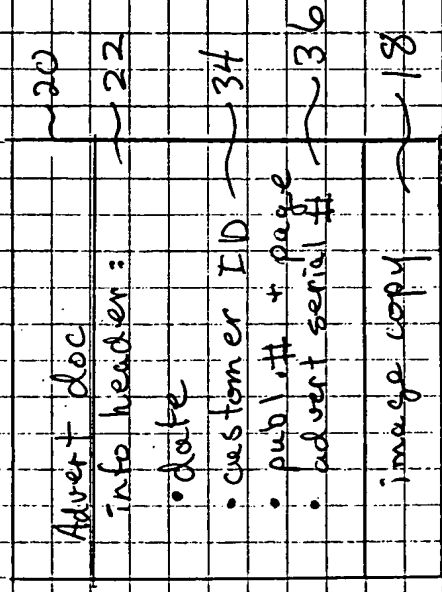 Advert doc ~ 20
info header: ~ 22
• date
• customer ID ~ 34
• publ. # + page
• advert serial # ~ 36
image copy ~ 18